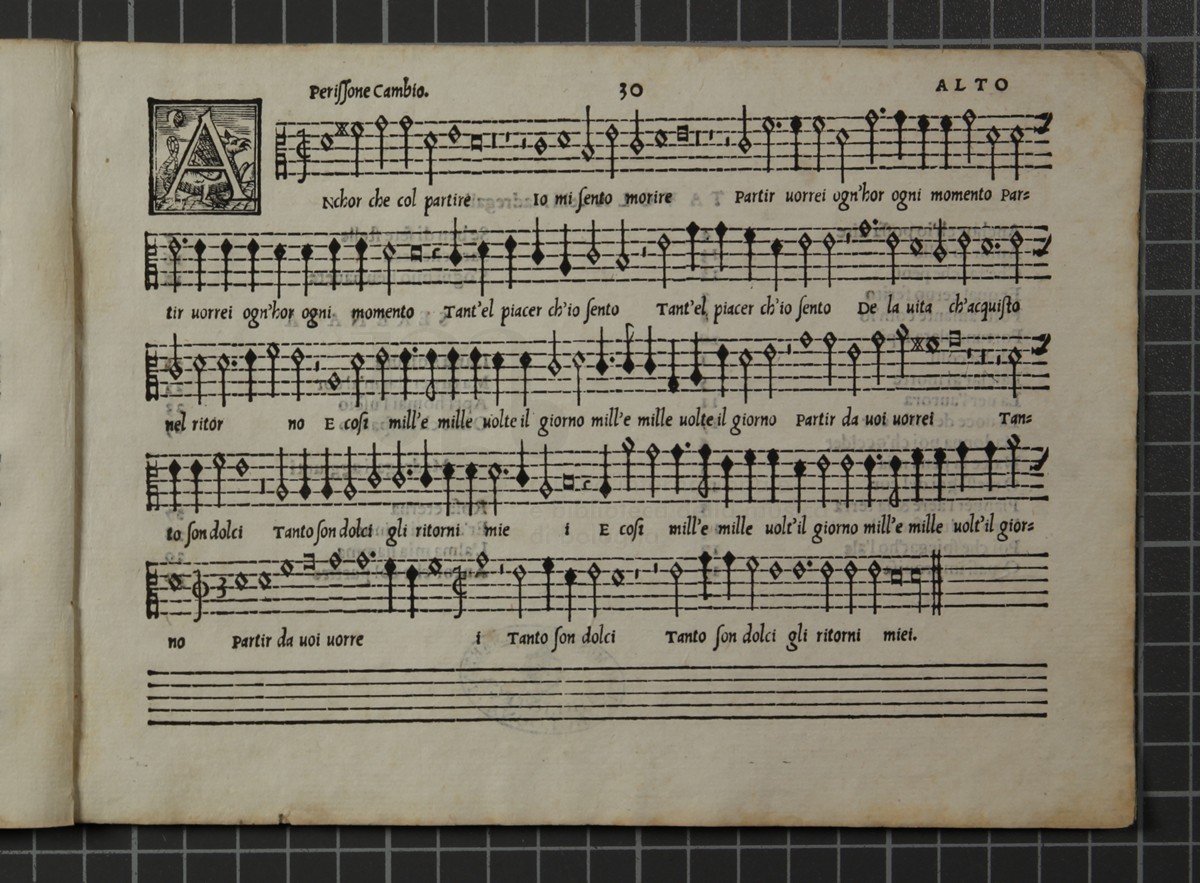 Perissone Cambio. 30 ALTO
ANchor che col partire Io mi sento morire Partir uorrei ogn'hor ogni momento Par=
tir uorrei ogn'hor ogni momento Tant'el piacer ch'io sento Tant'el piacer ch'io sento De la uita ch'acquisto
nel ritor no E cosi mill'e mille uolte il giorno mill'e mille uolte il giorno Partir da uoi uorrei Tan=
to son dolci Tanto son dolci gli ritorni mie i E cosi mill'e mille uolt'il giorno mill'e mille uolt'il gior=
no Partir da uoi uorre i Tanto son dolci Tanto son dolci gli ritorni miei.